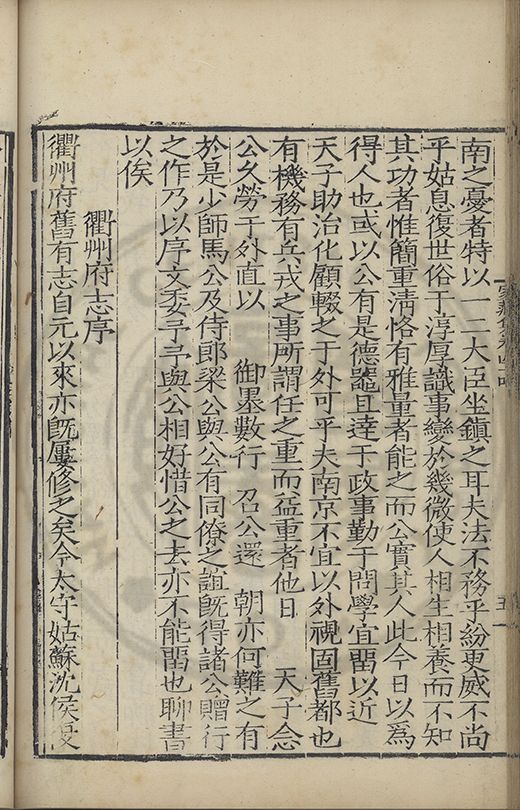 南之憂者特以一二大臣坐鎮之耳夫法不務乎紛更威不尚
乎姑息復世俗于淳厚識事變於幾微使人相生相養而不知
其功者惟簡重清恪有雅量者能之而公實其人此今日以爲
得人也或以公有是德器且達于政事勤于問學宜留以近
天子助治化顧輟之于外可乎夫南京不宜以外視固舊都也
有機務有兵戎之事所謂任之重而益重者他日 天子念
公久勞于外直以 御墨數行 召公還 朝亦何難之有
於是少師馬公及侍郎梁公與公有同僚之誼旣得諸公贈行
之作乃以序文委予予與公相好惜公之去亦不能留也聊書
以俟
衢州府志序
衢州府舊有志自元以來亦旣屢修之矣今太守姑蘇沈侯復